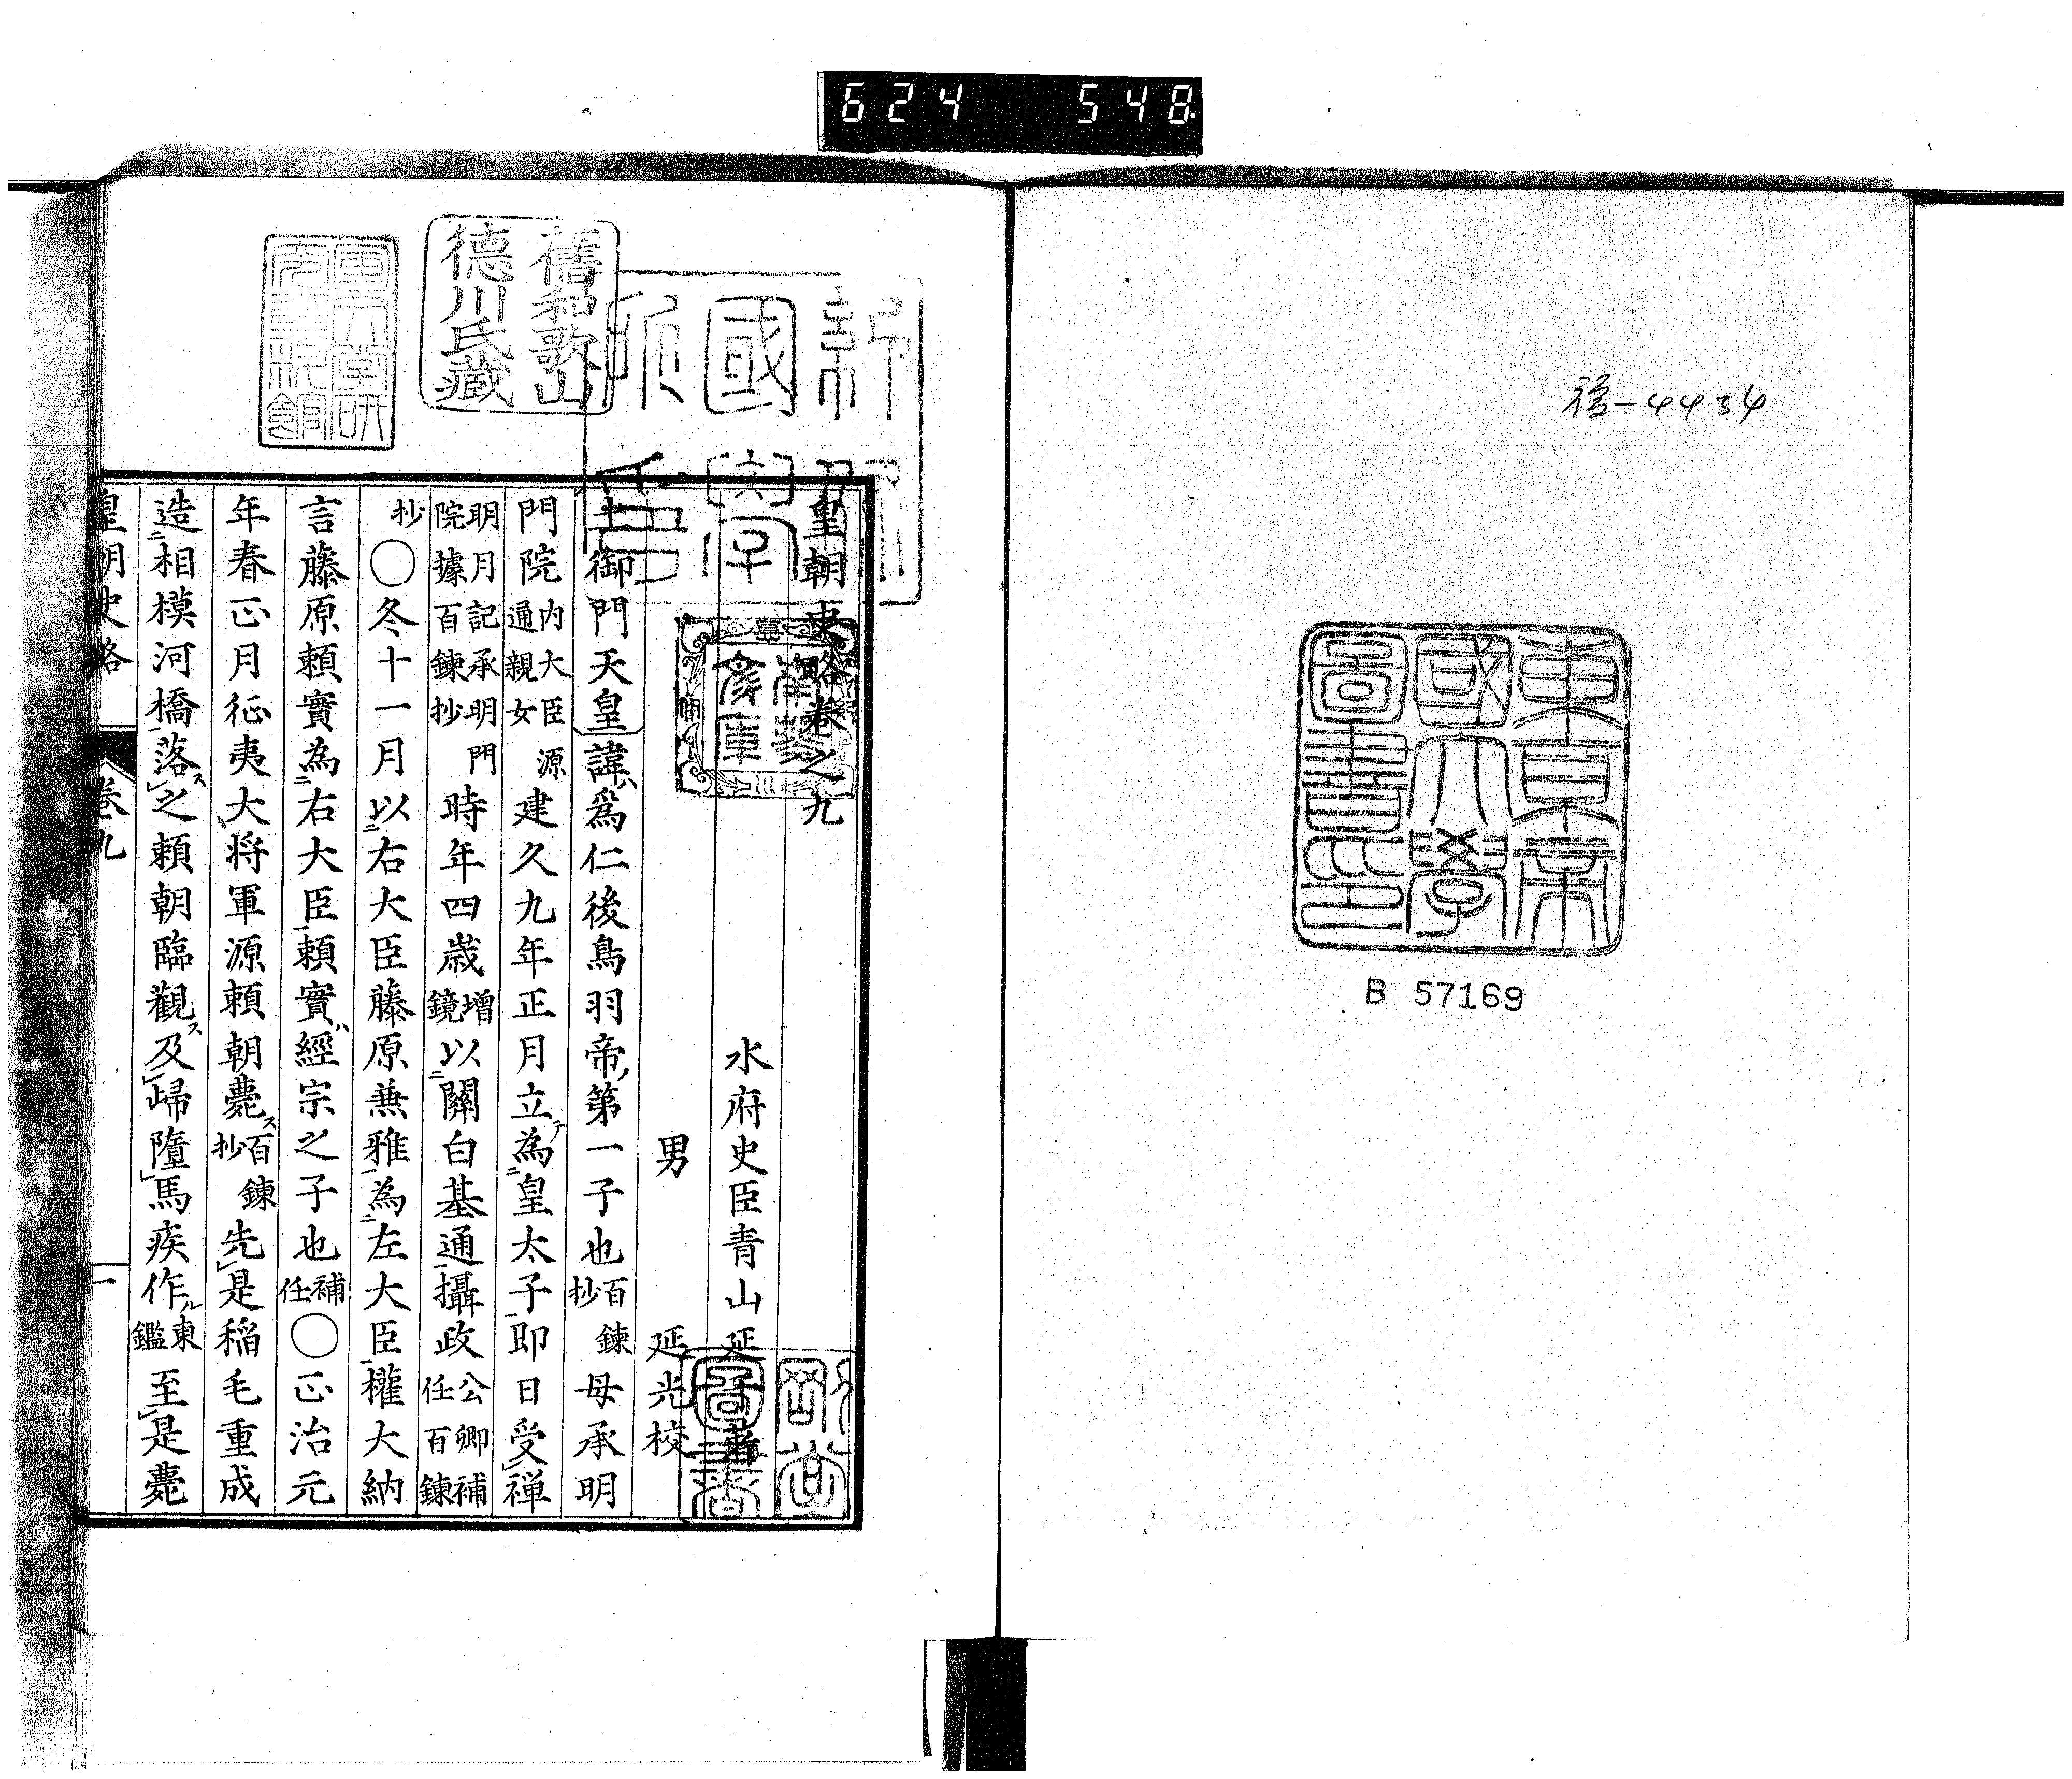 624 548
-4434
東京帝
國大學
圖書印
B 57169
舊和歌山
德川氏藏
皇朝史略卷之九
水府史臣青山延于著
男 延光校
土御門天皇諱ハ爲仁後鳥羽帝ノ第一子也百鍊抄母承明
門院內大臣源通親女建久九年正月立テ為二皇太子一即日受レ禅
明月記承明門院據百鍊抄時年四歲增鏡以二關白基通一攝政公卿補任百鍊
抄〇冬十一月以二右大臣藤原兼雅一為二左大臣一權大納
言藤原賴實為二右大臣一賴實ハ經宗之子也補任〇正治元
年春正月征夷大将軍源賴朝薨ス百鍊抄先レ是稲毛重成
造二相模河橋一落スレ之賴朝臨觀ス及レ歸隋レ馬疾作ル東鑑至レ是薨
皇朝史略 卷九 一